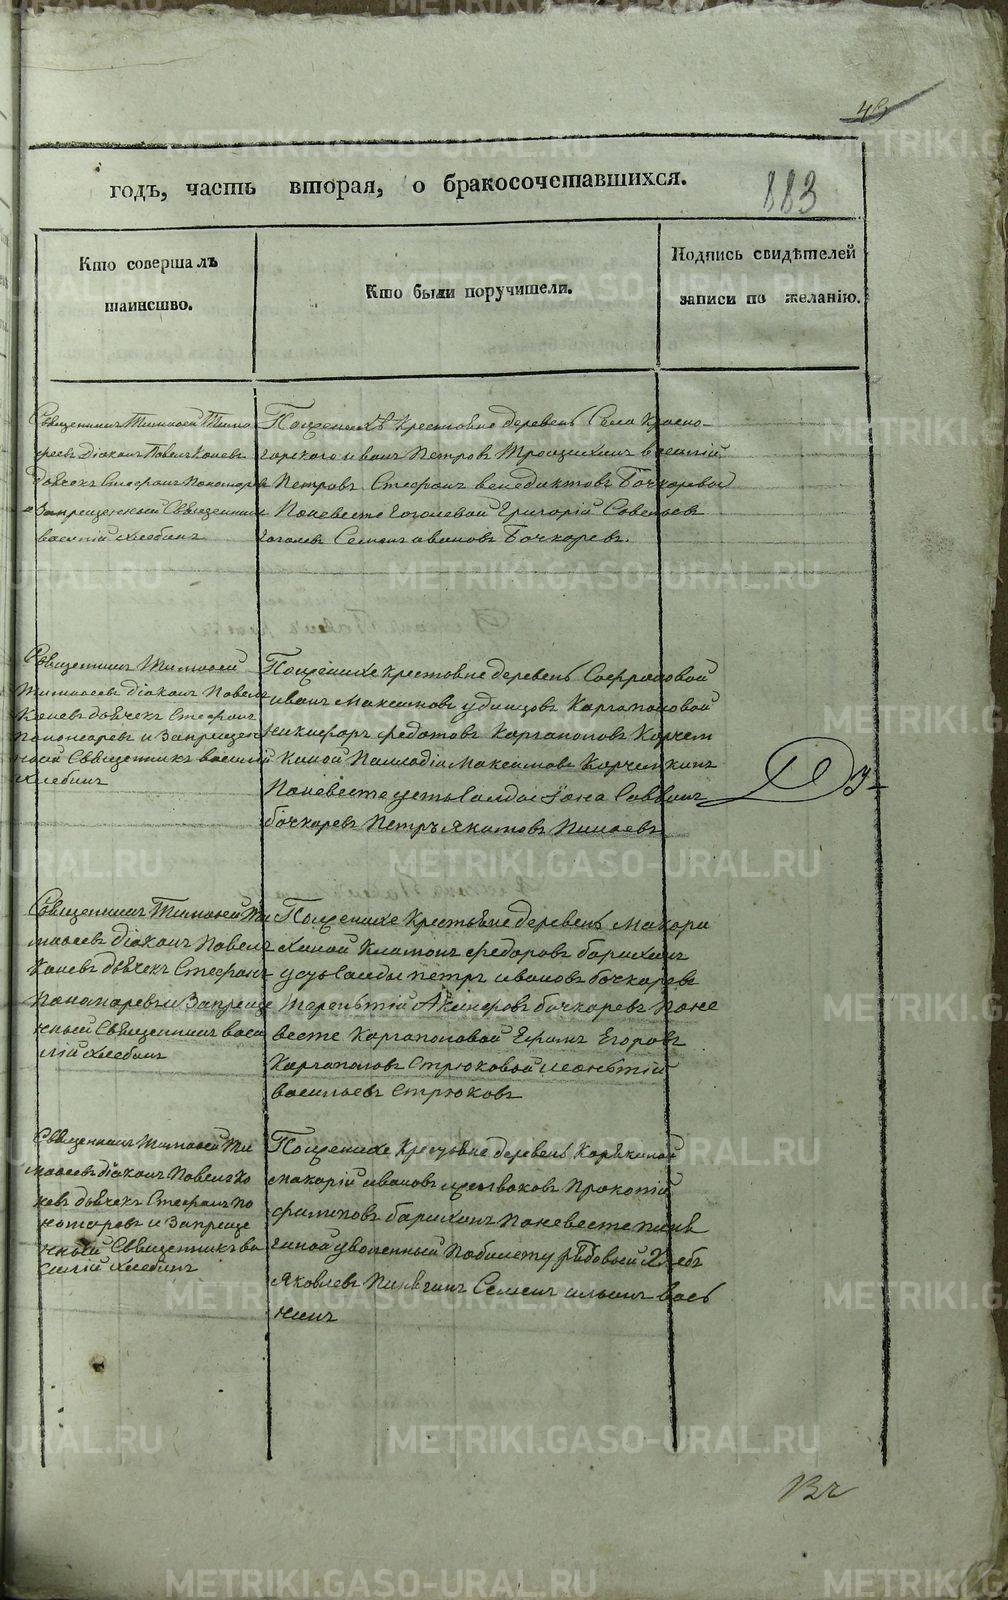 49
годъ, часть вторая, о бракосочетавшихся.
883
Кто совершалъ
таинство.
Кто были поручители.
Подпись свидѣтелей
записи по желанію.
Священникъ Тимофей Тимо
феевъ діаконъ Павелъ Каневъ
дьячекъ Стефанъ Пономарев
и Запрещенный Священник
василій хлебинъ
Поженихѣ крестьяне деревень Села Красно-
горского иванъ Петровъ василій
Петровъ Стефанъ венедиктовъ Бочкаревы
Поневесте Гоголевой Григорій Савельевъ
Гоголевъ Семенъ ивановъ Бочкаревъ.
Священникъ Тимофей
Тимофеевъ діаконъ Павелъ
Каневъ дьячекъ Стефанъ
Пономаревъ и Запрещен
ной Священникъ василій
хлебинъ
Поженихе крестьяне деревень Софроновой
иванъ Максимовъ удинцовъ Каргаполовой
никифоръ федотовъ Каргаполовъ Корчем
киной Палладій Максимовъ Корчемкинъ
Поневесте устьСалды Іона Саввинъ
бочкаревъ Петръ Пинаевъ
Священникъ Тимофей Ти
мофеевъ діаконъ Павелъ
Каневъ дьячекъ Стефанъ
Пономаревъ и Запреще
нный Священникъ васи
лій хлебинъ
Поженихе Крестьяне деревень Макари
хиной федоровъ барихинъ
устьСалды петръ ивановъ бочкаревъ
терентій бочкаревъ Поне
весте Каргаполовой Ефимъ Егоровъ
Каргаполовъ Стрюковой леонтій
васильевъ Стрюковъ
Священникъ Тимофей Ти
мофеевъ діаконъ Павелъ Ка
невъ дьячекъ Стефанъ По
номаревъ и Запреще
нный Священникъ Ва
силій хлебинъ
Поженихе Крестьяне деревень
макарій ивановъ Прокопій
филиповъ барихинъ Поневесте пиня
гиной уволенный Побилету рядовый Глебъ
Яковлевъ Пинягинъ Семенъ ильинъ вась
кинъ